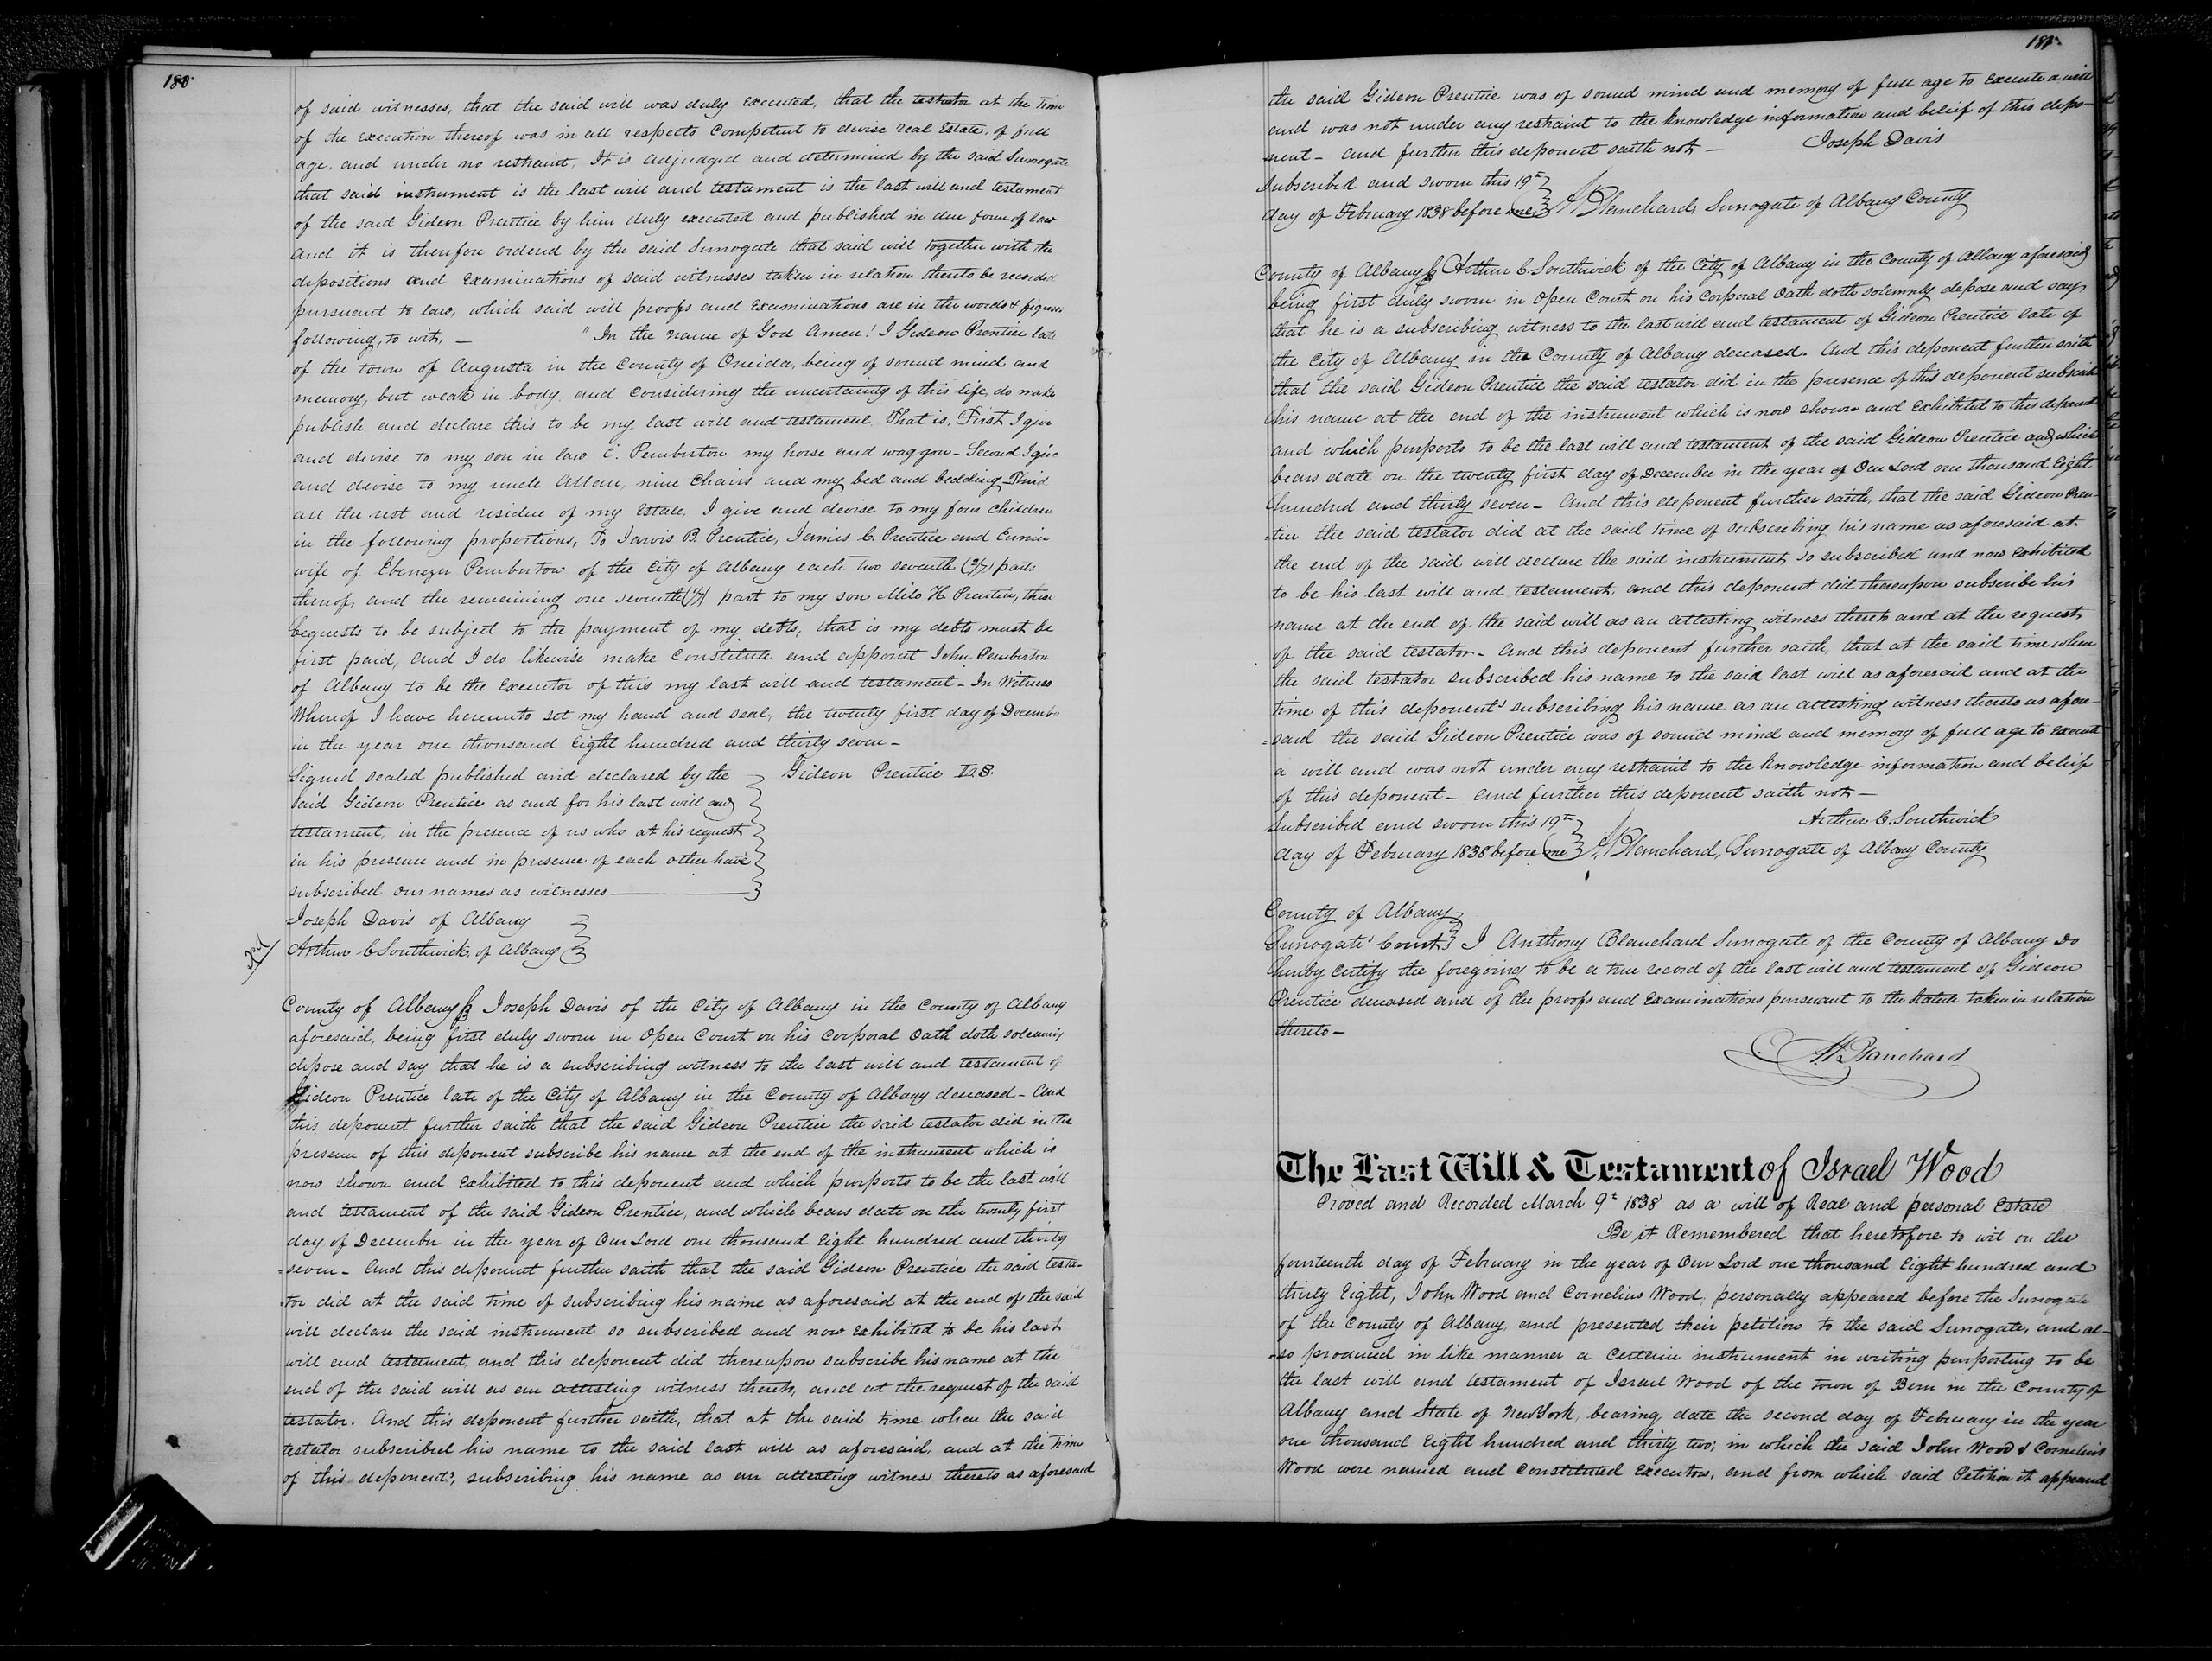 180.
of said witnesses, that the said will was duly executed, that the testator at the time
of the execution thereof was in all respects competent to devise real Estate, of full
age, and under no restraint. It is adjudged and determined by the said Surrogate
that said instrument is the last will and testament is the last will and testament
of the said Gideon Prentice by him duly executed and published in due form of law
and it is therefore ordered by the said Surrogate that said will together with the
depositions and Examinations of said witnesses taken in relation thereto be recorded
pursuant to law, which said will proofs and Examinations are in the words & figures
following, to wit, — "In the name of God Amen! I Gideon Prentice late
of the town of Augusta in the County of Oneida, being of sound mind and
memory, but weak in body and considering the uncertainty of this life, do make
publish and declare this to be my last will and testament. That is, First I give
and devise to my son in law E. Pemberton my horse and waggon - Second I give
and devise to my uncle Allen, nine chairs and my bed and bedding Third
all the rest and residue of my Estate, I give and devise to my four children
in the following proportions, To Jarvis B. Prentice, Jamis C. Prentice and
wife of Ebenezer Pemberton of the City of Albany each two seventh (2/7) parts
thereof, and the remaining one seventh (1/7) part to my son Milo H. Prentice, these
bequests to be subject to the payment of my debts, that is my debts must be
first paid, and I do likewise make constitute and appoint John Pemberton
of Albany to be the Executor of this my last will and testament - In Witness
Whereof I have hereunto set my hand and seal, the twenty first day of December
in the year one thousand Eight hundred and thirty seven -
Signed sealed published and declared by the Gideon Prentice L.S.
said Gideon Prentice as and for his last will and
testament, in the presence of us who at his request
in his presence and in presence of each other have
subscribed our names as witnesses —
Joseph Davis of Albany
Arthur C Southwick, of Albany
County of Albany ss Joseph Davis of the City of Albany in the County of Albany
aforesaid, being first duly sworn in Open Court on his Corporal Oath doth solemnly
depose and say that he is a subscribing witness to the last will and testament of
Gideon Prentice late of the City of Albany in the County of Albany deceased - And
this deponent further saith that the said Gideon Prentice the said testator did in the
presence of this deponent subscribe his name at the end of the instrument which is
now shown and Exhibited to this deponent and which purports to be the last will
and testament of the said Gideon Prentice, and which bears date on the twenty first
day of December in the year of Our Lord one thousand Eight hundred and thirty
=seven - And this deponent further saith that the said Gideon Prentice the said testa-
-tor did at the said time of subscribing his name as aforesaid at the end of the said
will declare the said instrument so subscribed and now Exhibited to be his last
will and testament, and this deponent did thereupon subscribe his name at the
end of the said will as an attesting witness thereto, and at the request of the said
testator. And this deponent further saith, that at the said time when the said
testator subscribed his name to the said last will as aforesaid, and at the time
of this deponent's, subscribing his name as an attesting witness thereto as aforesaid
181.
the said Gideon Prentice was of sound mind and memory of full age to Execute a will
and was not under any restraint to the knowledge information and belief of this depo-
-nent - and further this deponent saith not — Joseph Davis
Subscribed and sworn this 19th
day of February 1838 before me A Blanchard, Surrogate of Albany County
County of Albany ss Arthur C. Southwick of the City of Albany in the County of Albany aforesaid
being first duly sworn in Open Court on his Corporal Oath doth solemnly depose and say
that he is a subscribing witness to the last will and testament of Gideon Prentice late of
the City of Albany in the County of Albany deceased. And this deponent further saith
that the said Gideon Prentice the said testator did in the presence of this deponent subscribe
his name at the end of the instrument which is now shown and Exhibited to this deponent
and which purports to be the last will and testament of the said Gideon Prentice and which
bears date on the twenty first day of December in the year of Our Lord one thousand Eight
hundred and thirty seven - And this deponent further saith, that the said Gideon Pren-
=tice the said testator did at the said time of subscribing his name as aforesaid at
the end of the said will declare the said instrument so subscribed and now Exhibited
to be his last will and testament, and this deponent did thereupon subscribe his
name at the end of the said will as an attesting witness thereto and at the request
of the said testator - And this deponent further saith, that at the said time when
the said testator subscribed his name to the said last will as aforesaid and at the
time of this deponent's subscribing his name as an attesting witness thereto as afore-
=said the said Gideon Prentice was of sound mind and memory of full age to Execute
a will and was not under any restraint to the knowledge information and belief
of this deponent - and further this deponent saith not —
Arthur C. Southwick
Subscribed and sworn this 19th
day of February 1838 before me A Blanchard, Surrogate of Albany County
County of Albany
Surrogate's Court I Anthony Blanchard Surrogate of the County of Albany Do
hereby certify the foregoing to be a true record of the last will and testament of Gideon
Prentice deceased and of the proofs and Examinations pursuant to the Statute taken in relation
thereto -
A. Blanchard
The Last Will & Testament of Israel Wood
Proved and Recorded March 9t 1838 as a will of Real and personal Estate
Be it Remembered that heretofore to wit on the
fourteenth day of February in the year of Our Lord one thousand Eight hundred and
thirty Eight, John Wood and Cornelius Wood, personally appeared before the Surrogate
of the County of Albany, and presented their petition to the said Surrogate, and al-
-so produced in like manner a certain instrument in writing purporting to be
the last will and testament of Israel Wood of the town of Bern in the County of
Albany and State of New York, bearing date the second day of February in the year
one thousand Eight hundred and thirty two; in which the said John Wood & Cornelius
Wood were named and constituted Executors, and from which said Petition it appeared